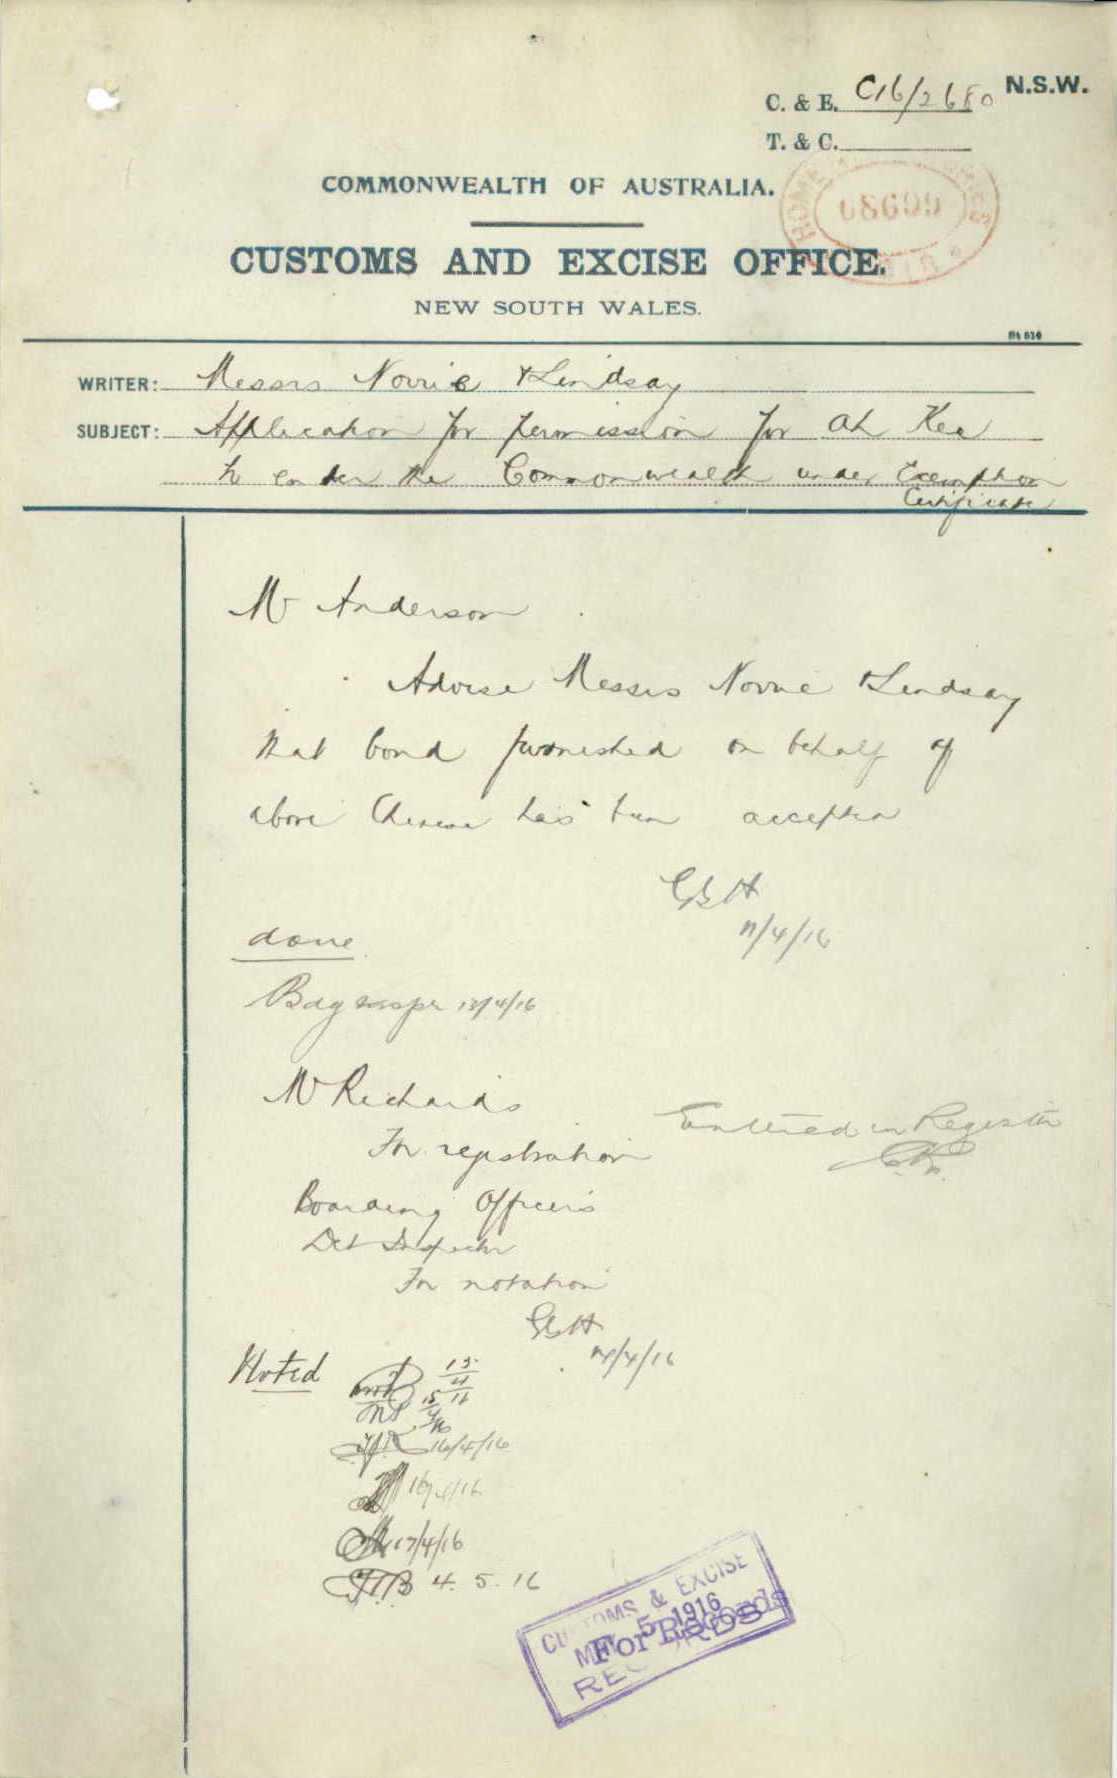 C. & E. C16/2680 N.S.W.
T. & C.
COMMONWEALTH OF AUSTRALIA.
08699
CUSTOMS AND EXCISE OFFICE.
NEW SOUTH WALES.
WRITER: Messrs Norrie & Lindsay
SUBJECT: Application for permission for Ah Kee
to enter the Commonwealth under Exemption
Certificate
Mr Anderson
Advise Messrs Norrie & Lindsay
that bond furnished on behalf of
above Chinese has been accepted
GBH
11/4/16
done
13/4/16
Mr Richards
For registration
Entered in Register
Boarding Officers
Det Inspector
For notation
GBH
14/4/16
Noted
15/4/16
15/4/16
16/4/16
16/4/16
17/4/16
4.5.16
CUSTOMS & EXCISE
MAY 5 1916
For Records
RECORDS